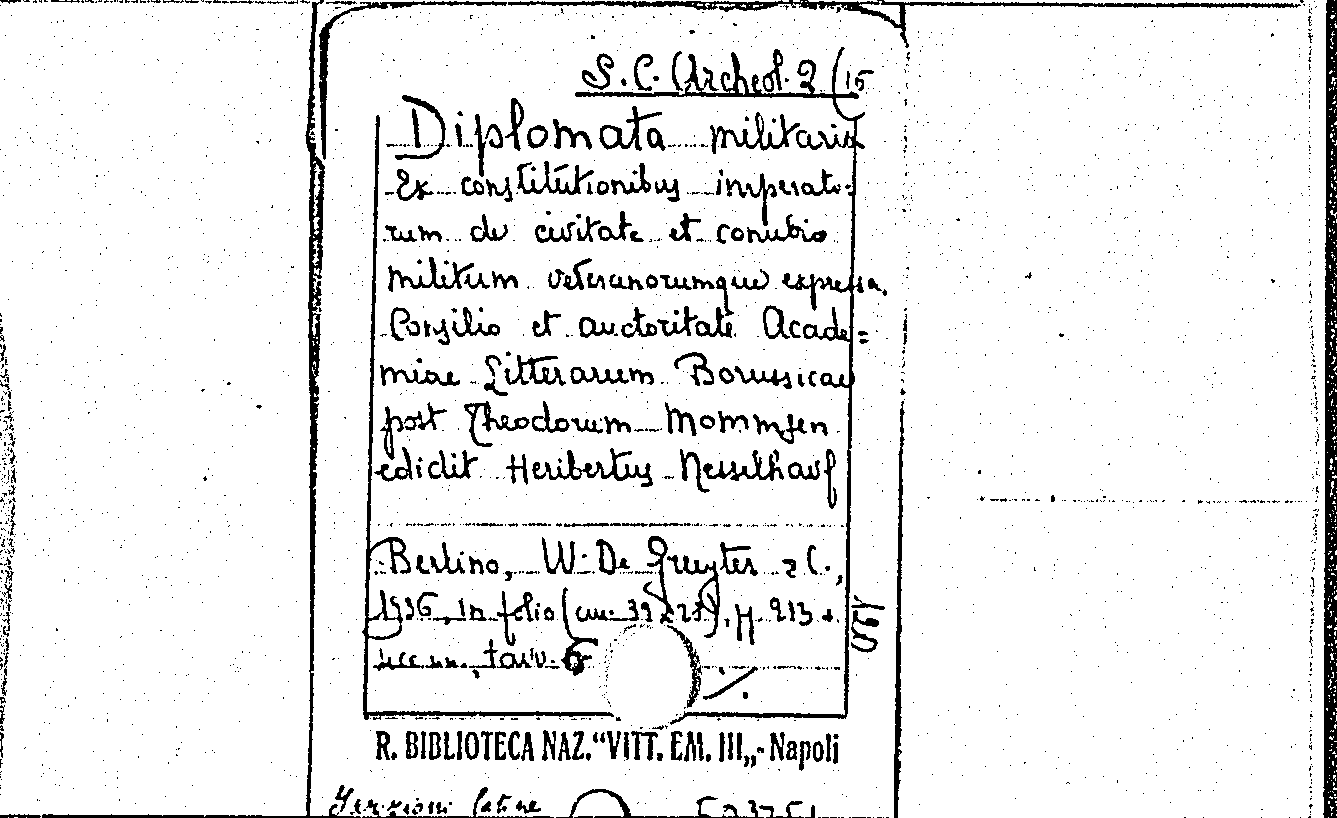 S.C. (Archeol. 2 (15
Diplomata militaria
Ex constitutionibus imperato-
rum de civitate et conubio
militum veteranorumque expressa.
Consilio et auctoritate Acade=
miae Litterarum Borussicae
post Theodorum Mommsen
edidit Heribertus Nesselhauf
Berlino, W. De Gruyter & C.,
1936, in folio (cm. 39 x 27), pp. 213 +
tavv. 6
./.
R. BIBLIOTECA NAZ. “VITT. EM. III„ - Napoli
Iscrizioni latine